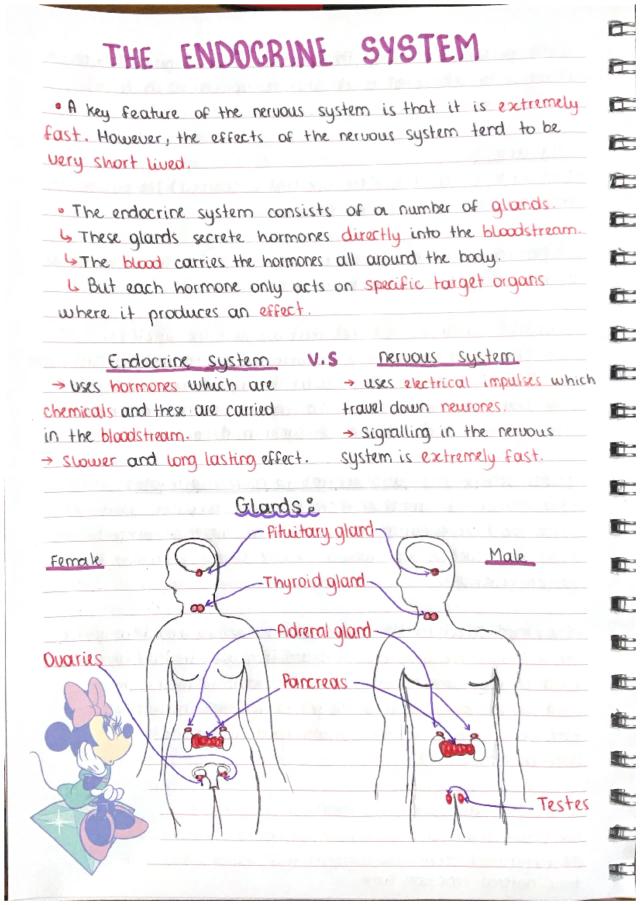 THE ENDOCRINE SYSTEM
• A key feature of the nervous system is that it is extremely
fast. However, the effects of the nervous system tend to be
very short lived.
• The endocrine system consists of a number of glands.
↳ These glands secrete hormones directly into the bloodstream.
↳ The blood carries the hormones all around the body.
↳ But each hormone only acts on specific target organs
where it produces an effect.
Endocrine system V.S nervous system
→ uses hormones which are
chemicals and these are carried
in the bloodstream.
→ slower and long lasting effect.
→ uses electrical impulses which
travel down neurones.
→ signalling in the nervous
system is extremely fast.
Glands:
Female
Male
Pituitary gland
Thyroid gland
Adrenal gland
Ovaries
Pancreas
Testes